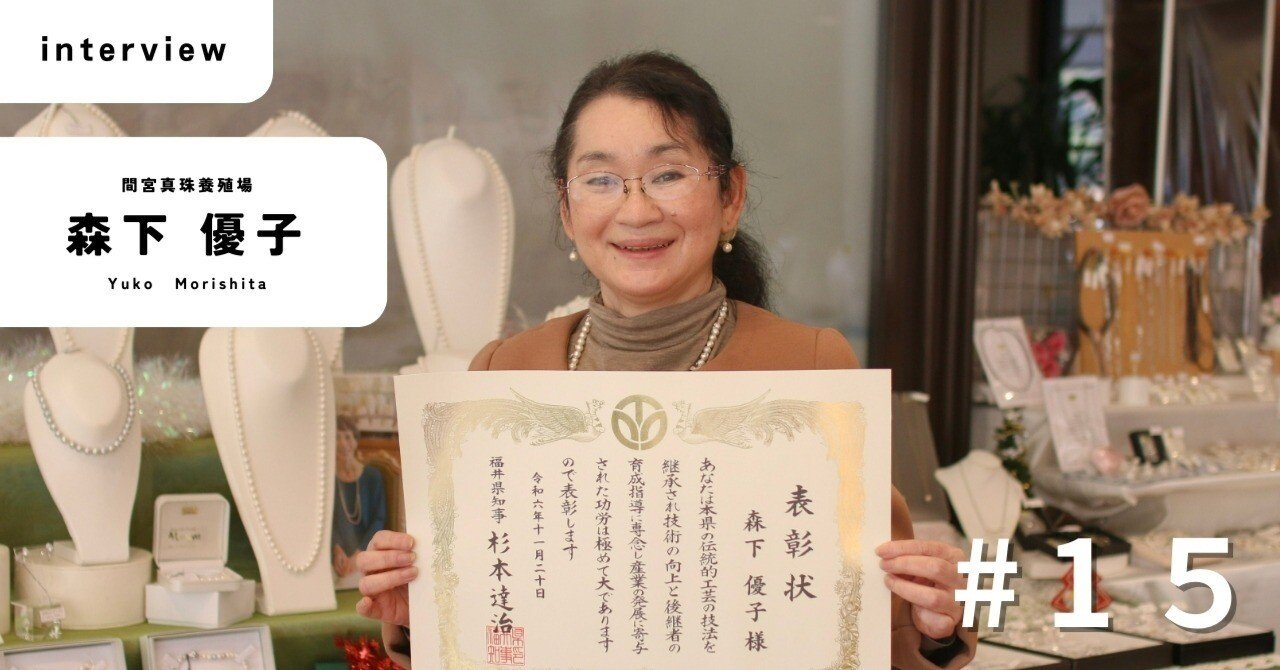 interview
間宮真珠養殖場
森下 優子
Yuko Morishita
表彰状
森下 優子 様
あなたは本県の伝統的工芸の技法を
継承され技術の向上と後継者の
育成指導に専念し産業の発展に寄与
された功労は極めて大であります
ので表彰します
令和六年十一月二十日
福井県知事 杉本達治
#15